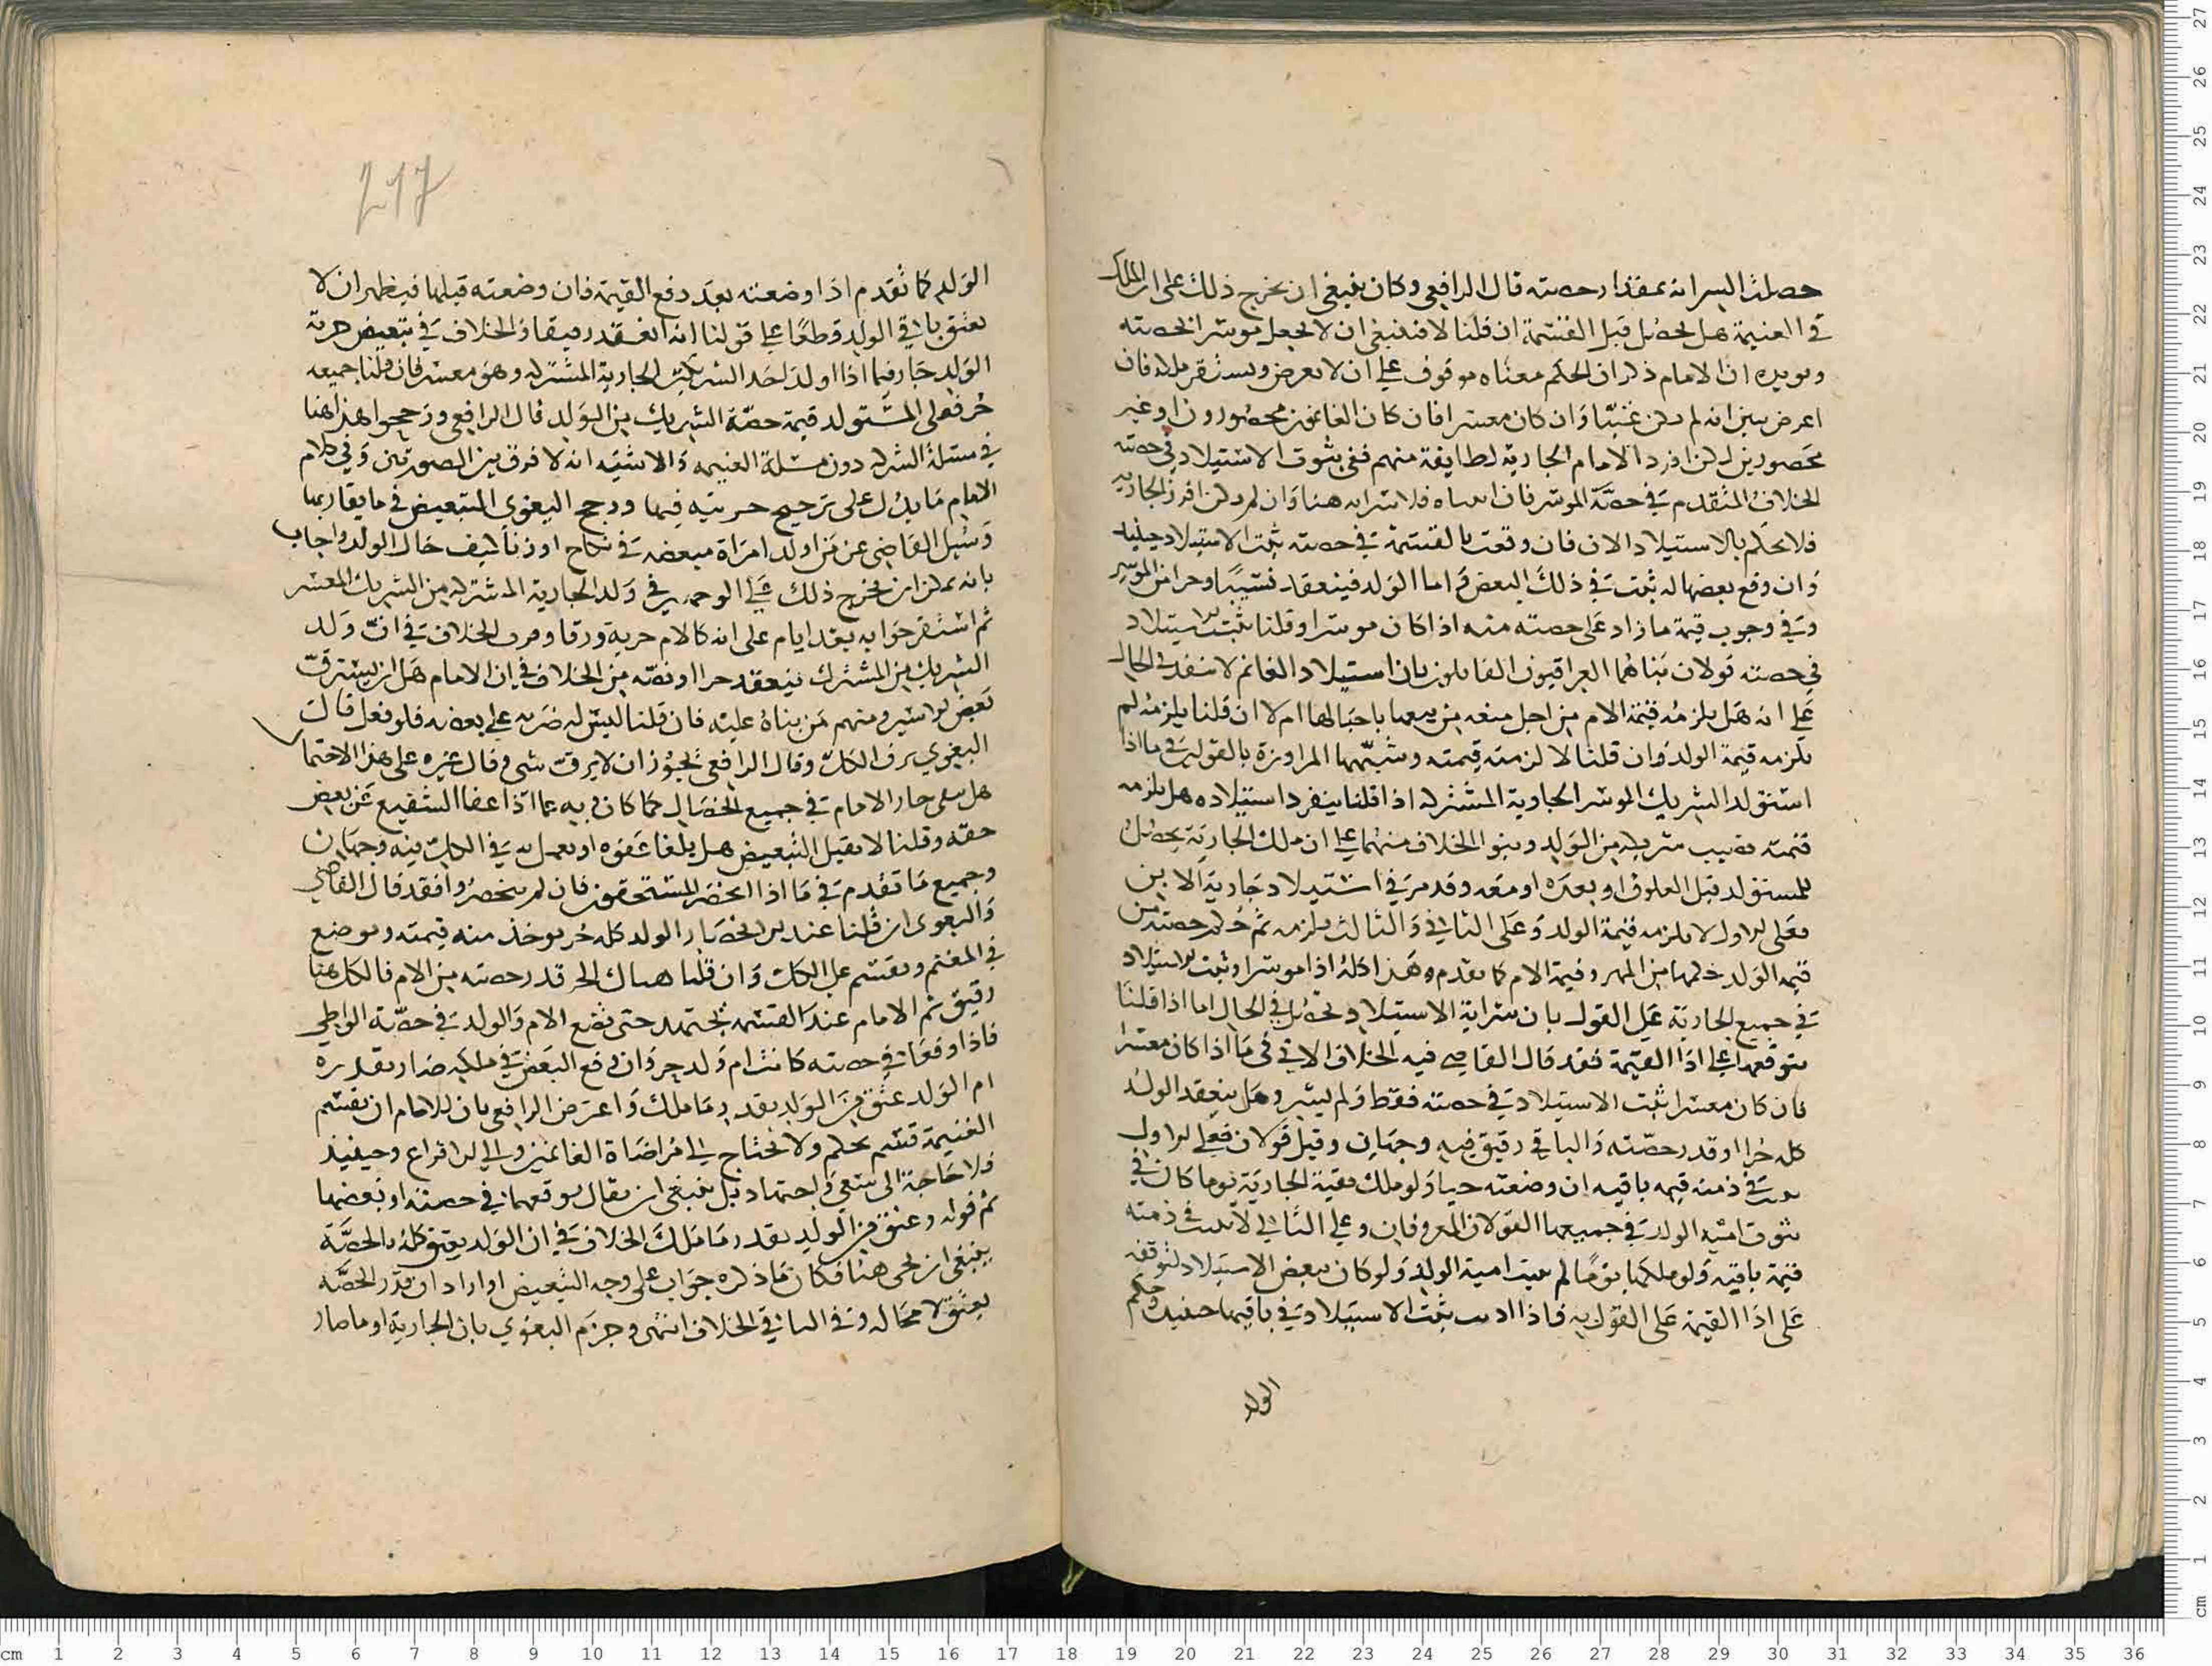 حصلت السراية بمقدار حصته قال الرافعي وكان ينبغي ان يخرج ذلك على ان الملك
في الغنيمة هل يحصل قبل القسمة ان قلنا لا فينبغي ان لا يجعل موسرا بحصته
ويويده ان الامام ذكر ان الحكم بغناه موقوف على ان لا يعرض ويستقر ملكه فان
اعرض تبين انه لم يكن غنيا وان كان معسرا فان كان الغانمون محصورون او غير
محصورين لكن افرد الامام الجارية لطايفة منهم ففي ثبوت الاستيلاد في حصته
الخلاف المتقدم في حصة الموسر فان اثبتناه فلا سراية هنا وان لم يكن افرز الجارية
فلا يحكم بالاستيلاد الان فان وقعت بالقسمة في حصته ثبت الاستيلاد حينيذ
وان وقع بعضها له ثبت في ذلك البعض واما الولد فينعقد نسيبا وحرا من الموسر
وفي وجوب قيمة ما زاد على حصته منه اذا كان موسرا وقلنا يثبت الاستيلاد
في حصته قولان بناهما العراقيون القايلون بان استيلاد الغانم لا ينفذ في الحال
على انه هل يلزمه قيمة الام من اجل منعه من بيعها باحبالها ام لا ان قلنا يلزمه لم
يلزمه قيمة الولد وان قلنا لا لزمته قيمته وشبهها المراوزة بالقولين في ما اذا
استولد الشريك الموسر الجارية المشتركة اذا قلنا ينفرد استيلاده هل يلزمه
قيمة نصيب شريكه من الولد وبنوا الخلاف منهما على ان ملك الجارية يحصل
للمستولد قبل العلوق او بعده او معه وقد مر في استيلاد جارية الابن
فعلى الاول لا يلزمه قيمة الولد وعلى الثاني والثالث يلزمه ثم حكم حصته من
قيمة الولد حكمها من المهر وقيمة الام كما تقدم وهذا كله اذا موسرا وثبت الاستيلاد
في جميع الجارية على القول بان سراية الاستيلاد تحصل في الحال اما اذا قلنا
بتوقفها على اداء القيمة فقد قال القاضي فيه الخلاف الاتي في ما اذا كان معسرا
فان كان معسرا ثبت الاستيلاد في حصته فقط ولم يسر وهل ينعقد الولد
كله حرا او قدر حصته والباقي رقيق فيه وجهان وقيل قولان فعلى الاول
يثبت في ذمته قيمة باقيه ان وضعته حيا ولو ملك بقية الجارية يوما كان في
ثبوت امية الولد في جميعها القولان المعروفان وعلى الثاني لا يثبت في ذمته
قيمة باقيه ولو ملكها يوما لم يثبت امية الولد ولو كان تبعض الاستيلاد لتوقفه
على اداء القيمة على القول به فاذا اديت ثبت الاستيلاد في باقيها حينيذ وحكم
الولد
217
الولد كما تقدم اذا وضعته بعد دفع القيمة فان وضعته قبلها فيظهر ان لا
يعتق باقي الولد قطعا على قولنا انه انعقد رقيقا والخلاف في تبعيض حرية
الولد جار فيما اذا اولد احد الشريكين الجارية المشتركة وهو معسر فان قلنا جميعه
حر فعلى المستولد قيمة حصة الشريك من الولد قال الرافعي ورجحوا هذا هنا
في مسئلة الشركة دون مسئلة الغنيمة والاشبه انه لا فرق بين الصورتين وفي كلام
الامام ما يدل على ترجيح حريته فيها ورجح البغوي التبعيض في ما يقاربها
وسيل القاضي عن من اولد امراة مبعضة في نكاح او زنا كيف حال الولد واجاب
بانه يمكن ان يخرج ذلك على الوجهين في ولد الجارية المشتركة من الشريك المعسر
ثم استقر جوابه بعد ايام على انه كالام حرية ورقا وقرب الخلاف في ان ولد
الشريك من المشترك ينعقد حرا او نصفه من الخلاف في ان الامام هل ان يسترق
بعض الاسير ومنهم من بناه عليه فان قلنا ليس له ضربه على بعضه فلو فعل قال
البغوي يرق الكل وقال الرافعي يجوز ان لا يرق شي وقال غيره على هذا الاحتمال
هل يبقى خيار الامام في جميع الخصال كما كان فيه كما اذا عفا الشفيع عن بعض
حقه وقلنا لا يقبل التبعيض هل يلغا عفوه او يعمل به في الكل فيه وجهان
وجميع ما تقدم في ما اذا انحصر المستحقون فان لم ينحصروا فقد قال القاضي
والبغوي ان قلنا عند الانحصار الولد كله حر يوخذ منه قيمته ويوضع
في المغنم ويقسم على الكل وان قلنا هناك الحر قدر حصته من الام فالكل هنا
رقيق ثم الامام عند القسمة يجتهد حتى تقع الام والولد في حصة الواطي
فاذا وقعا في حصته كانت ام ولد حر وان وقع البعض في ملكه صار بقدره
ام الولد عتق من الولد بقدر ما ملك واعترض الرافعي بان للامام ان يقسم
الغنيمة قسم تحكم ولا تحتاج الى مراضاة الغانمين والى الاقراع وحينيذ
فلا حاجة الى سعي واجتهاد بل ينبغي ان يقال يوقعها في حصته او بعضها
ثم قوله وعتق من الولد بقدر ما ملك الخلاف في ان الولد يعتق كله بالحصة
ينبغي ان يجي هنا فكان ما ذكره جواب على وجه التبعيض او اراد ان قدر الحصة
يعتق لا محالة وفي الباقي الخلاف انتهى وجزم البغوي بان الجارية او ما صار